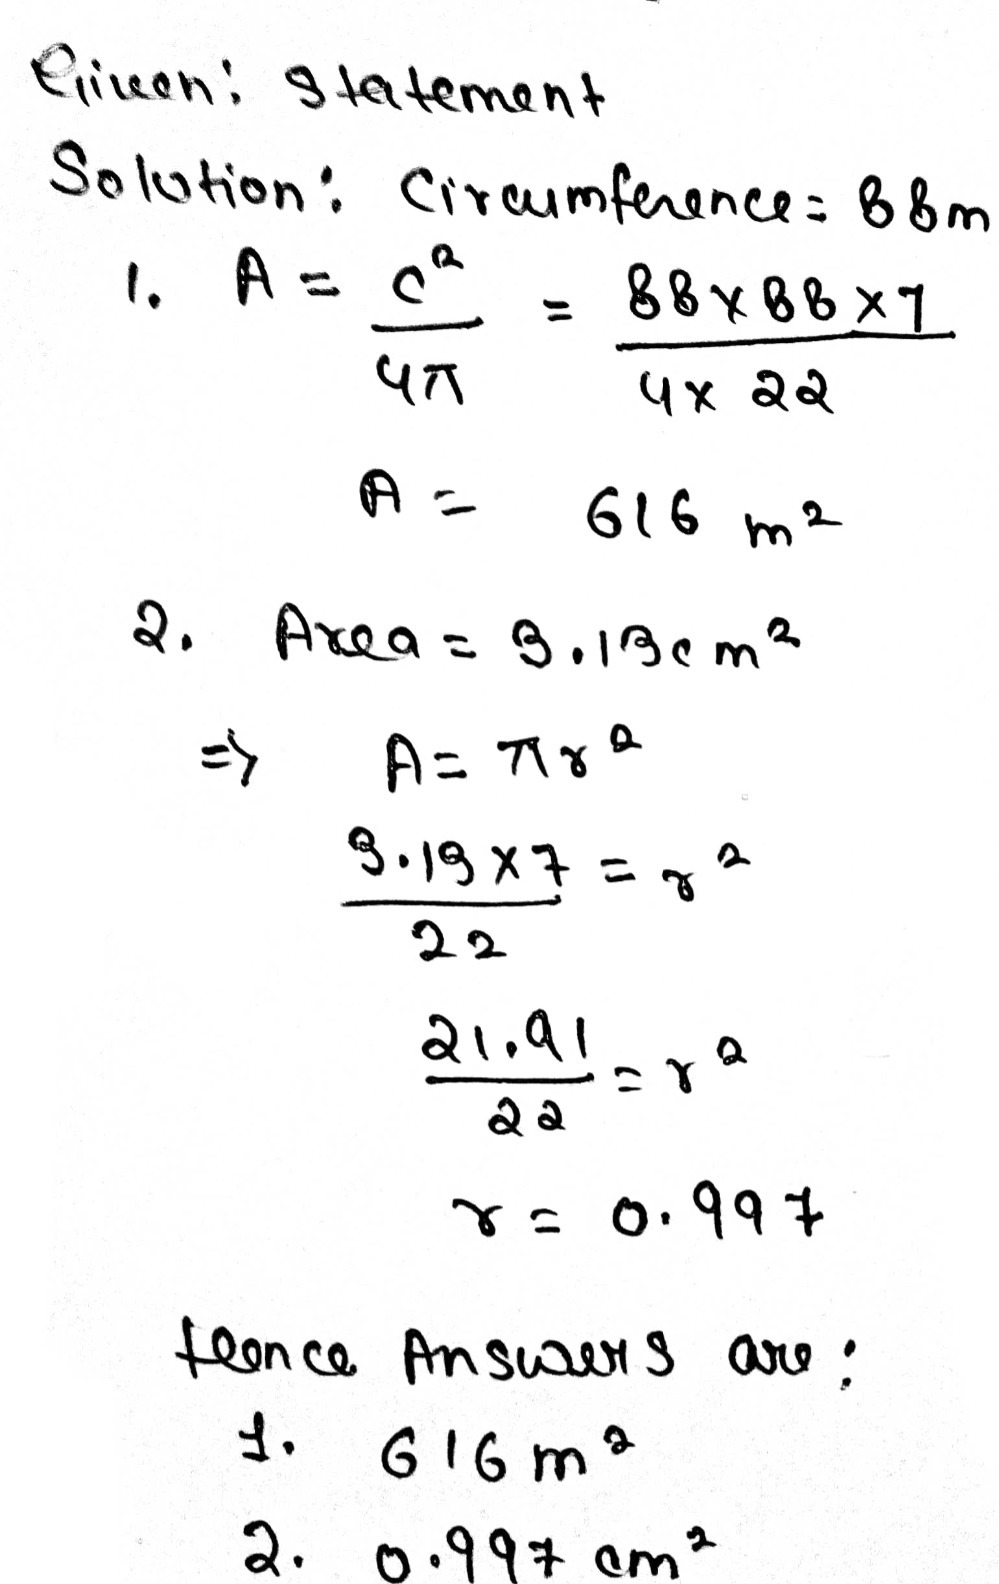 Given: Statement
Solution: Circumference = 88m
1. A = c²/4π = 88×88×7/4×22
A = 616 m²
2. Area = 3.13cm²
=> A = πr²
3.13×7/22 = r²
21.91/22 = r²
r = 0.997
Hence Answers are:
1. 616 m²
2. 0.997 cm²